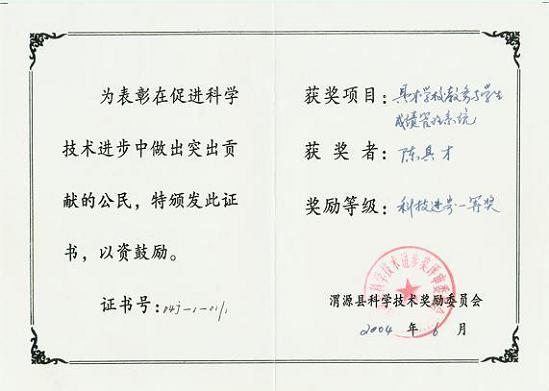 为表彰在促进科学
技术进步中做出突出贡
献的公民，特颁发此证
书，以资鼓励。
证书号：04J-1-01/1
获奖项目：具才学校教务与学生
成绩管理系统
获奖者：陈具才
奖励等级：科技进步一等奖
科学技术进步奖评审委员会
渭源县科学技术奖励委员会
2004 年 6 月